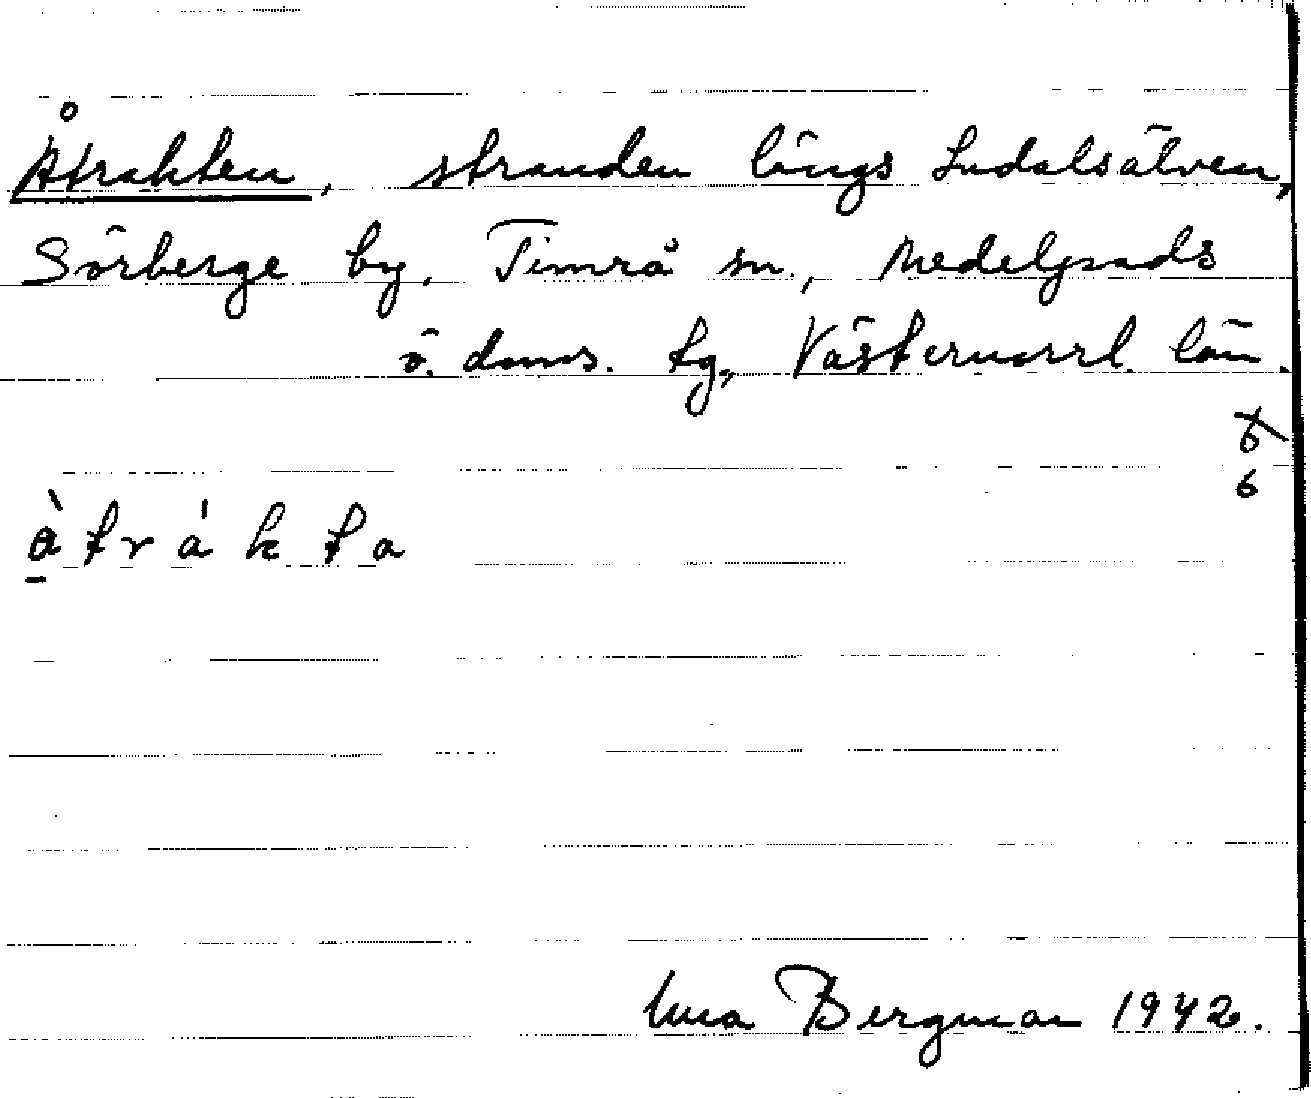 Åtrakten, stranden längs Indalsälven,
Sörberge by, Timrå sn., Medelpads
ö. doms. tg, Västernorrl. län.
6
6
àtrákta
Bergman 1942.